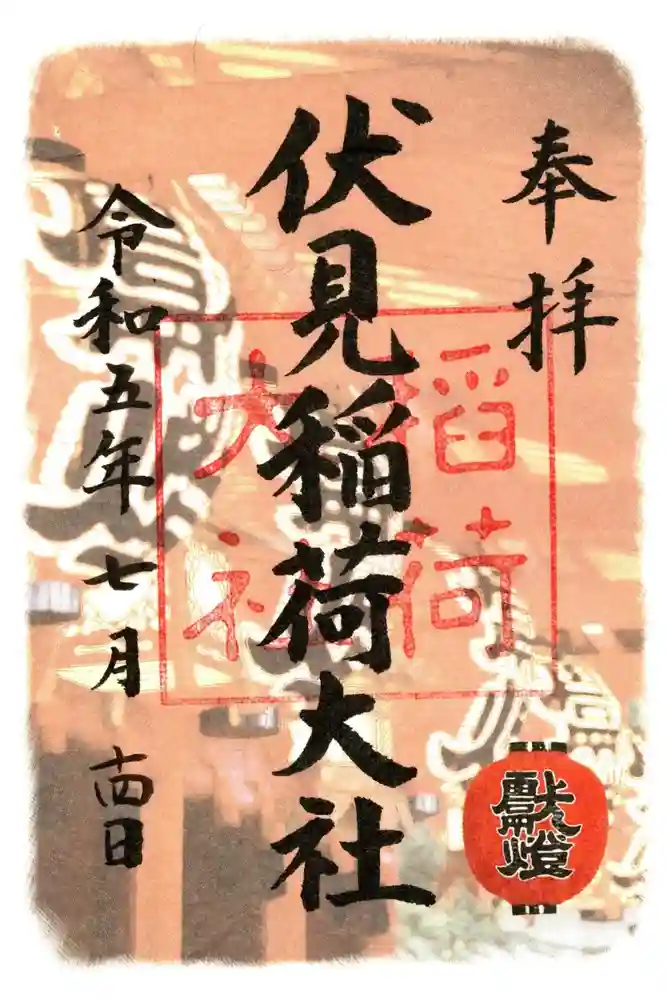 奉拝
伏見稲荷大社
令和五年七月十四日
稲荷
大社
獻燈